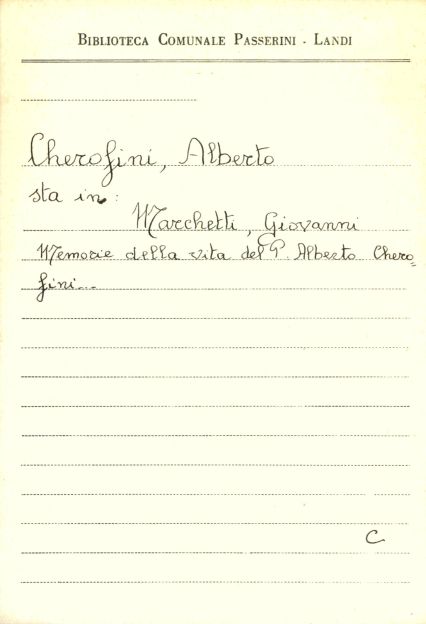 BIBLIOTECA COMUNALE PASSERINI - LANDI
Cherofini, Alberto
sta in:
Marchetti, Giovanni
Memorie della vita del P. Alberto Chero=
fini...
C